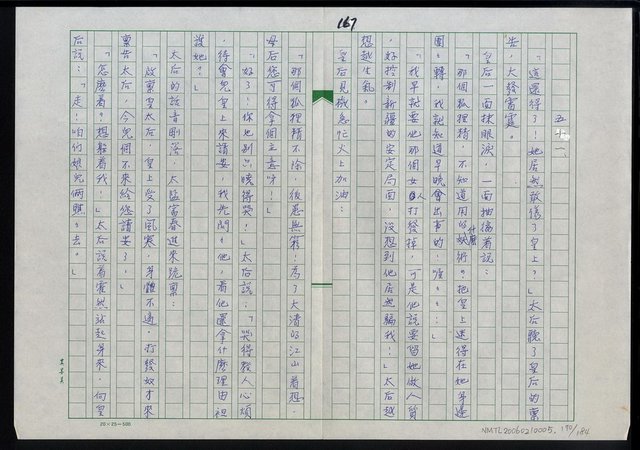 167
五十一、
「這還得了!她居然敢傷了皇上?」太后聽了皇后的稟
告,大發雷霆。
皇后一面抹眼淚,一面抽搐着説:
「那個狐狸精,不知道用的什麼妖術?把皇上迷得在她身邊
團團轉,我就知道早晚會出事的,嗚……!」
「我早就要他那個女人打發掉,可是他説要留她做人質
,好控制新疆的安定局面,沒想到他居然騙我!」太后越
想越生氣。
皇后見機急忙火上加油:
「那個狐狸精不除,後患無窮!為了大清的江山着想,
母后您可得拿個主意呀!」
「好了!你也別只曉得哭!」太后說:「哭得教人心煩
,待會兒皇上來請安,我先問問他,看他還拿什麼理由袒
護她?」
太后的話音剛落,太監富春進來跪稟:
「啟稟皇太后,皇上受了風寒,身體不適,打發奴才來
稟告太后,今兒個不來給您請安了!」
「怎麼着?想躲着我!」太后説着霍然站起身來,向皇
后説:「走!咱們娘兒倆瞧瞧去。」
20×25=500
NMTL20060210005. 170/184